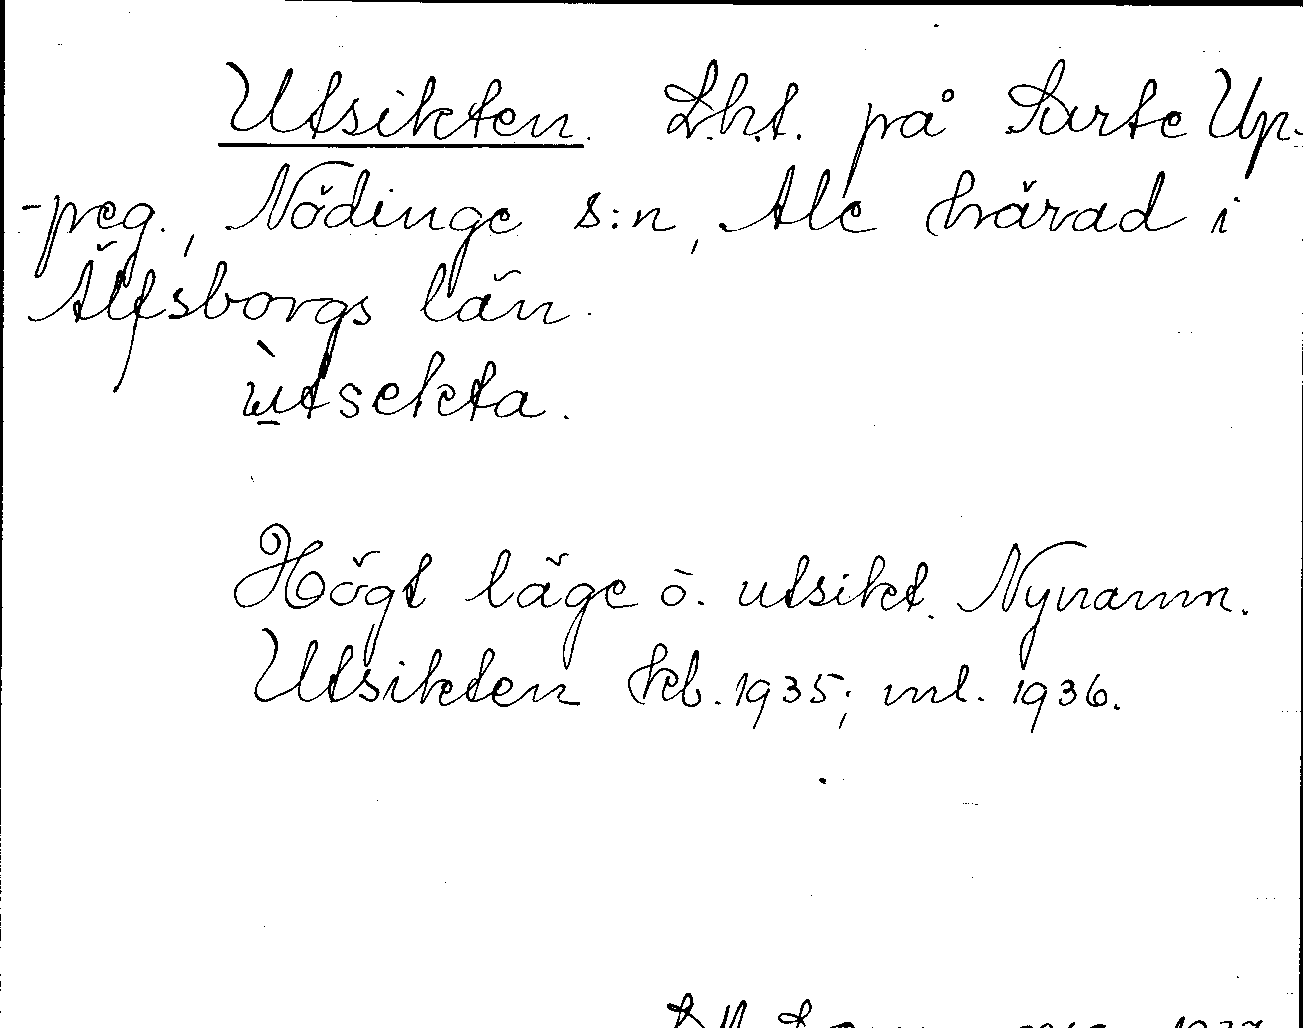 Utsikten. L.h.t. på Surte Up-
-peg., Nödinge s:n, Ale härad i
Älfsborgs län.
ùtsekta.
Högt läge o. utsikt. Nynamn.
Utsikten kb. 1935; ml. 1936.